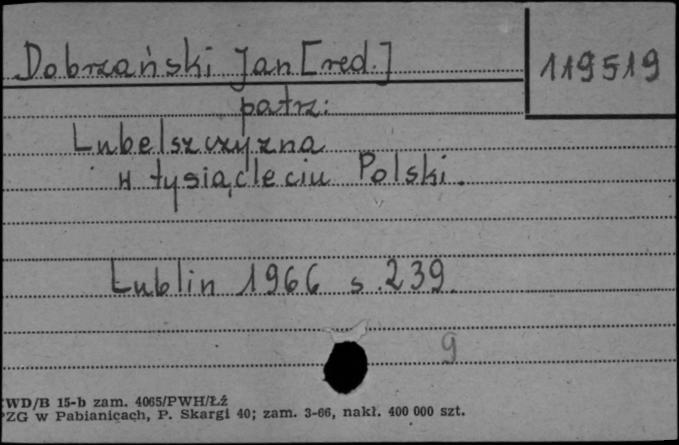 Dobrzański Jan [red.]
119519
patrz:
Lubelszczyzna
w tysiącleciu Polski.
Lublin 1966 s. 239.
9
WD/B 15-b zam. 4065/PWH/Łź
PZG w Pabianicach, P. Skargi 40; zam. 3-66, nakł. 400 000 szt.